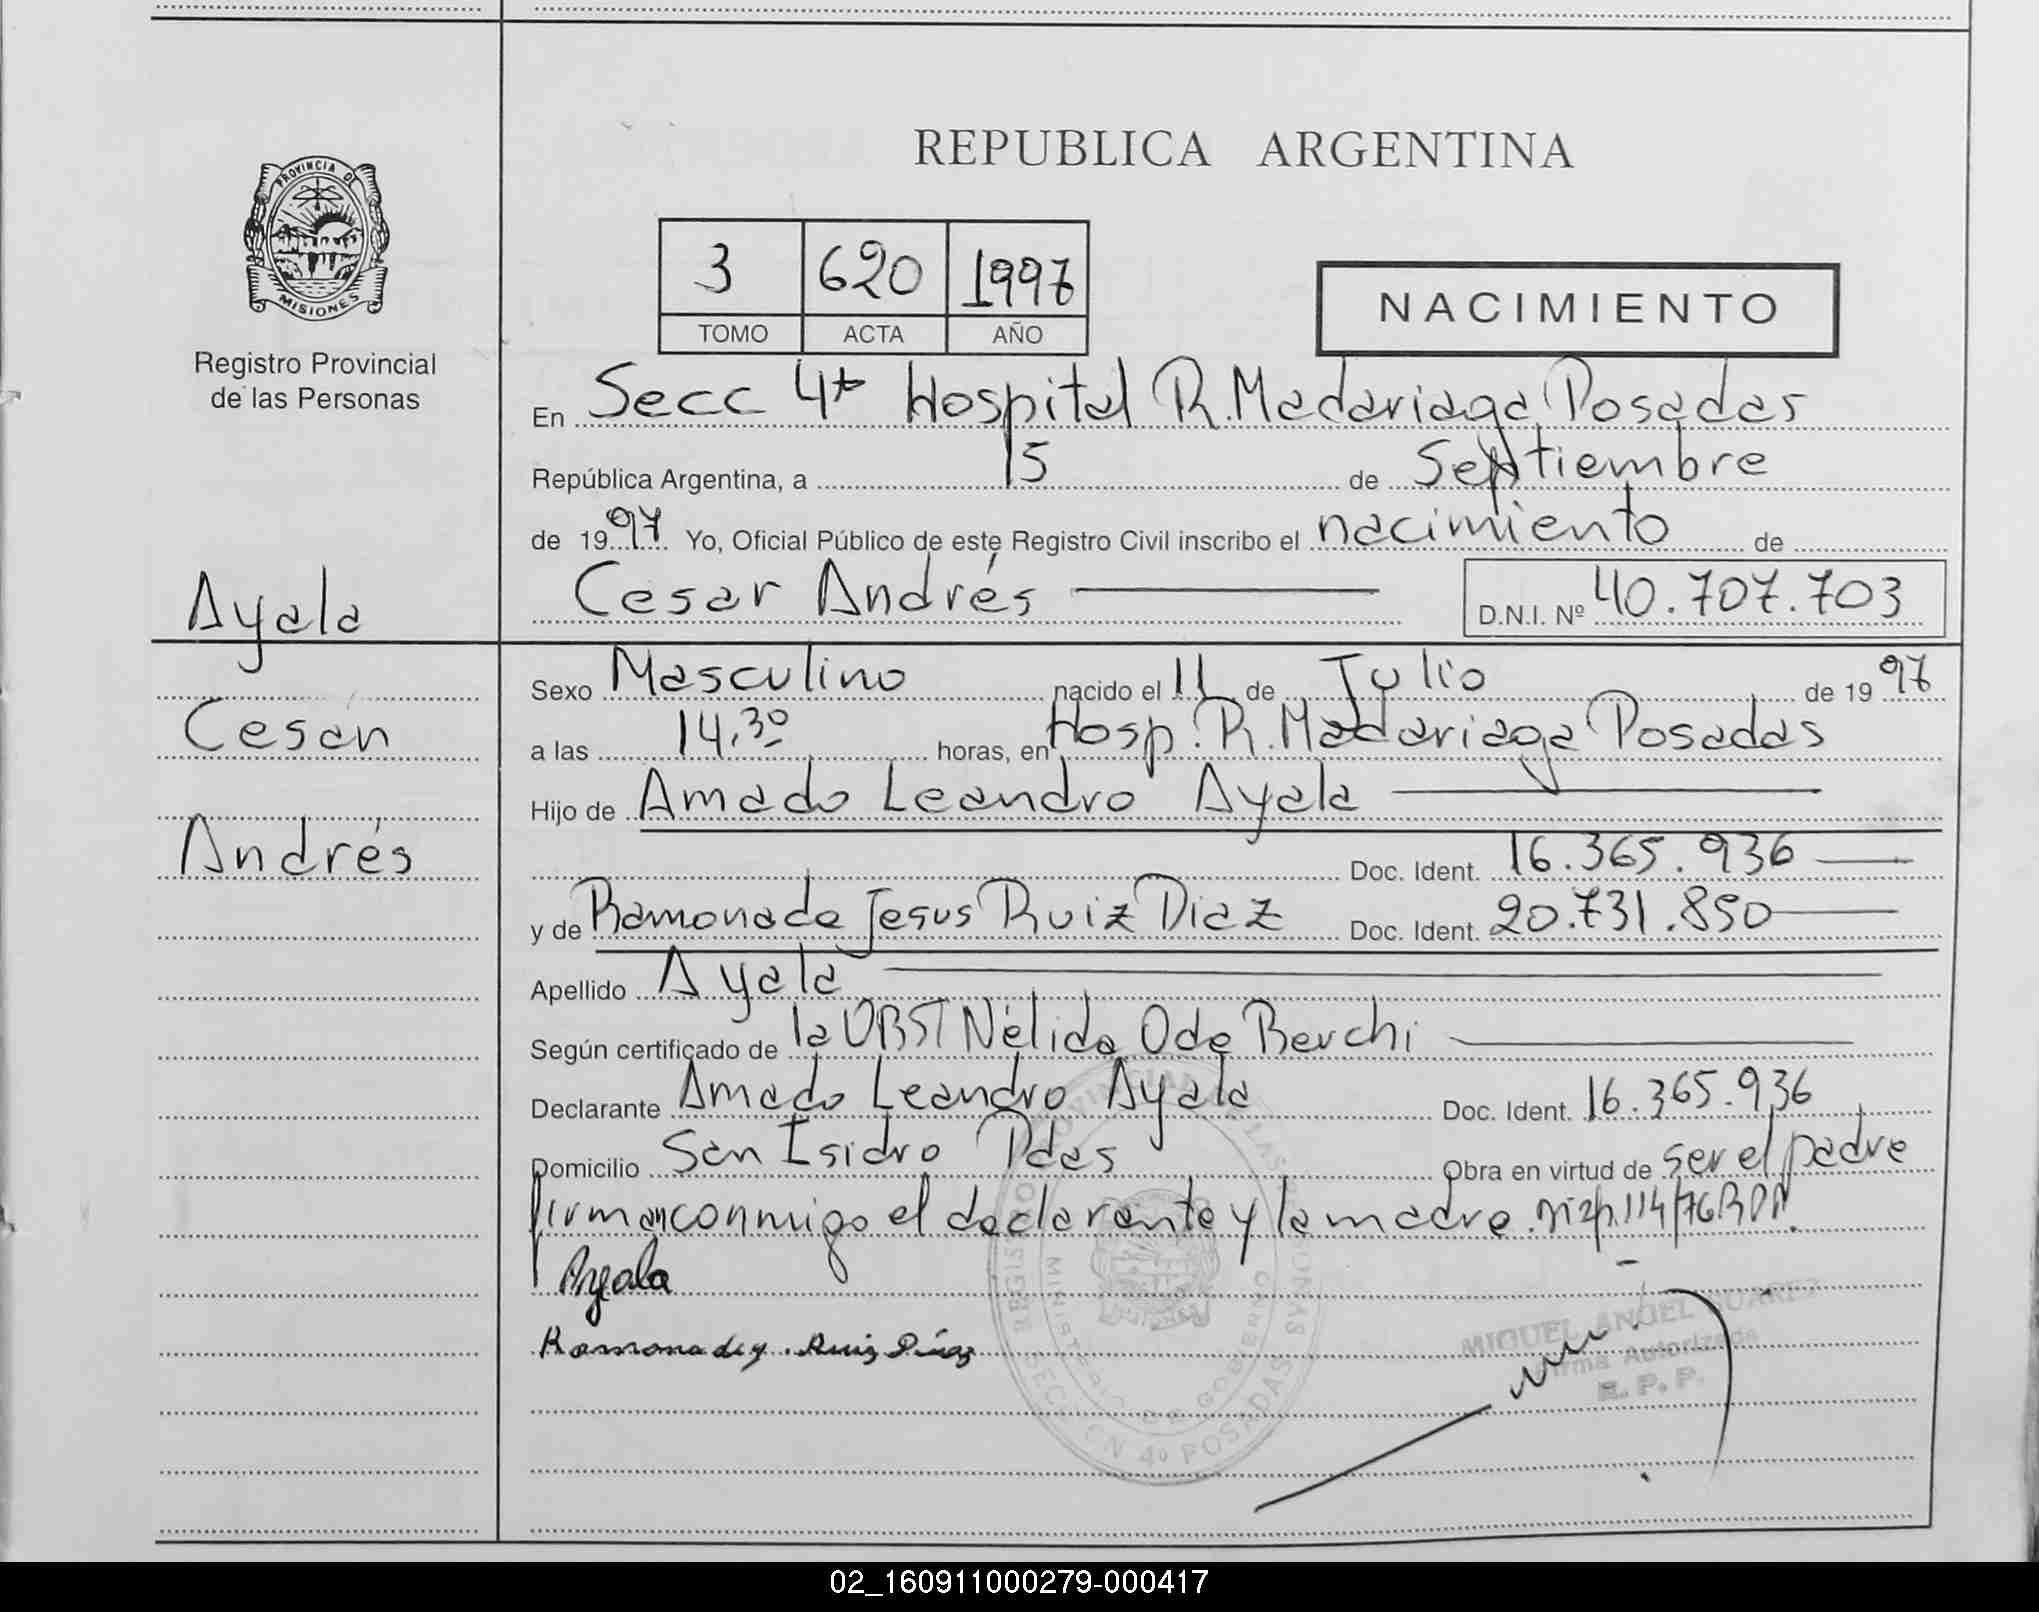 REPUBLICA ARGENTINA
PROVINCIA DE
MISIONES
Registro Provincial
de las Personas
3 620 1997
TOMO ACTA AÑO
NACIMIENTO
En Secc 4ta Hospital R. Madariaga Posadas
República Argentina, a 15 de Septiembre
de 1997 Yo, Oficial Público de este Registro Civil inscribo el nacimiento de
Cesar Andrés D.N.I. Nº 40.707.703
Ayala
Cesar
Andrés
Sexo Masculino nacido el 11 de Julio de 1997
a las 14,30 horas, en Hosp. R. Madariaga Posadas
Hijo de Amado Leandro Ayala
Doc. Ident. 16.365.936
y de Ramona de Jesus Ruiz Diaz Doc. Ident. 20.731.850
Apellido Ayala
Según certificado de la OBST Nélida Oda Berchi
Declarante Amado Leandro Ayala Doc. Ident. 16.365.936
Domicilio San Isidro Pdas Obra en virtud de ser el padre
firman conmigo el declarante y la madre. 114/76 RPP.
Ayala
Ramona de J. Ruiz Díaz
REGISTRO PROVINCIAL DE LAS PERSONAS
MINISTERIO DE GOBIERNO
SECCION 4º POSADAS
MIGUEL ANGEL SUAREZ
Firma Autorizada
R. P. P.
02_160911000279-000417